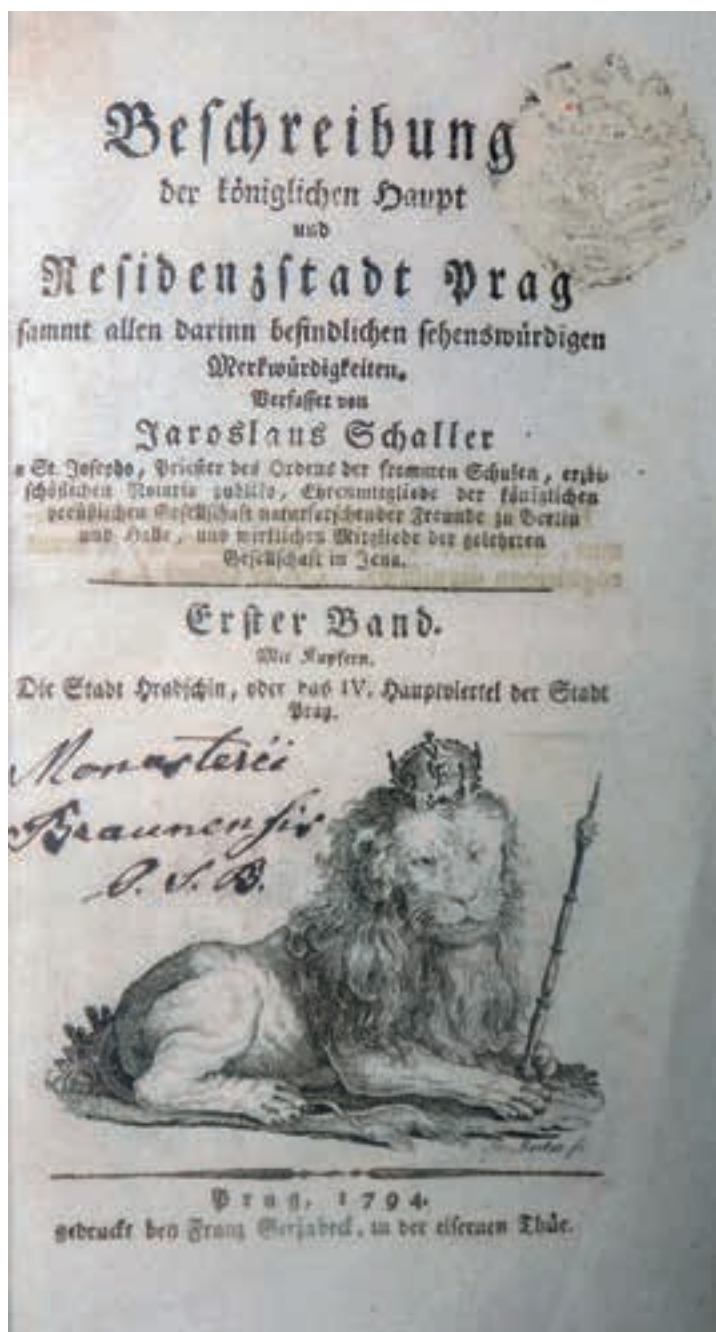 Beschreibung
der königlichen Haupt
und
Residenzstadt Prag
sammt allen darinn befindlichen sehenswürdigen
Merkwürdigkeiten.
Verfasset von
Jaroslaus Schaller
a St. Josepho, Priester des Ordens der frommen Schulen, erzbi-
schöflichen Notario publiko, Ehrenmitgliede der königlichen
preußischen Gesellschaft naturforschender Freunde zu Berlin
und Halle, und wirklichen Mitgliede der gelehrten
Gesellschaft in Jena.
Erster Band.
Mit Kupfern.
Die Stadt Hradschin, oder das IV. Hauptviertel der Stadt
Prag.
Monasterii
Braunensis
O. S. B.
Prag, 1794.
gedruckt bey Franz Gerzabeck, in der eisernen Thür.